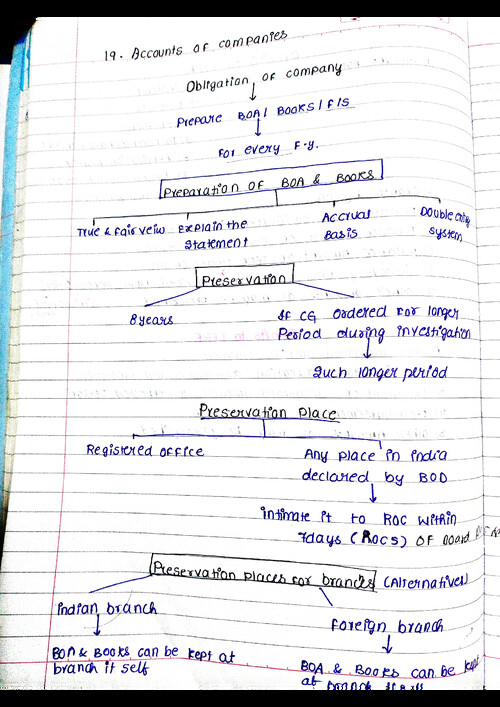 19. Accounts of companies
Obligation of company
Prepare BOA/ Books/F/S
For every F.y.
Preparation of BOA & Books
True & fair veiw Explain the Accrual Double entry
statement Basis system
Preservation
8 years If CG ordered for longer
Period during investigation
Such longer period
Preservation Place
Registered office Any place in india
declared by BOD
intimate it to ROC within
7days (ROCS) of Board
Preservation places for branches (Alternatives)
indian branch
foreign branch
BOA & Books can be kept at BOA & Books can be kept
branch it self at branch itself